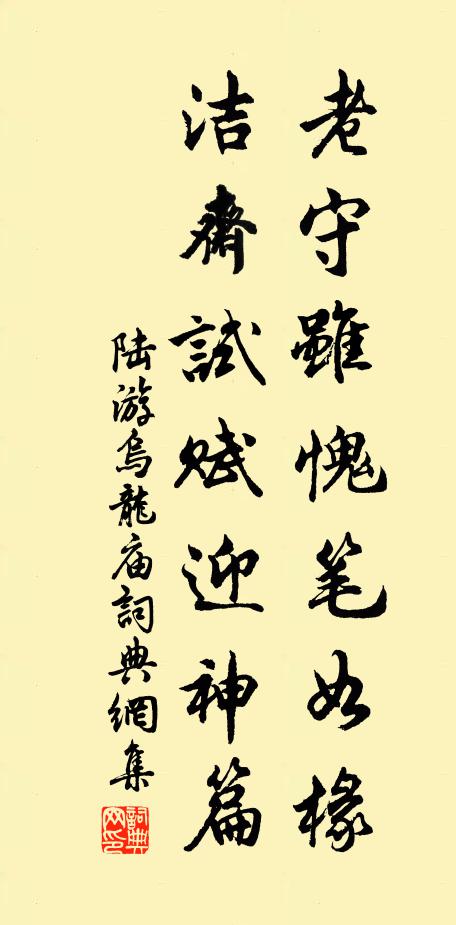 老守雖愧笔如椽
洁齋試赋迎神篇
陆游烏龍庙詞典網集
詞典网印